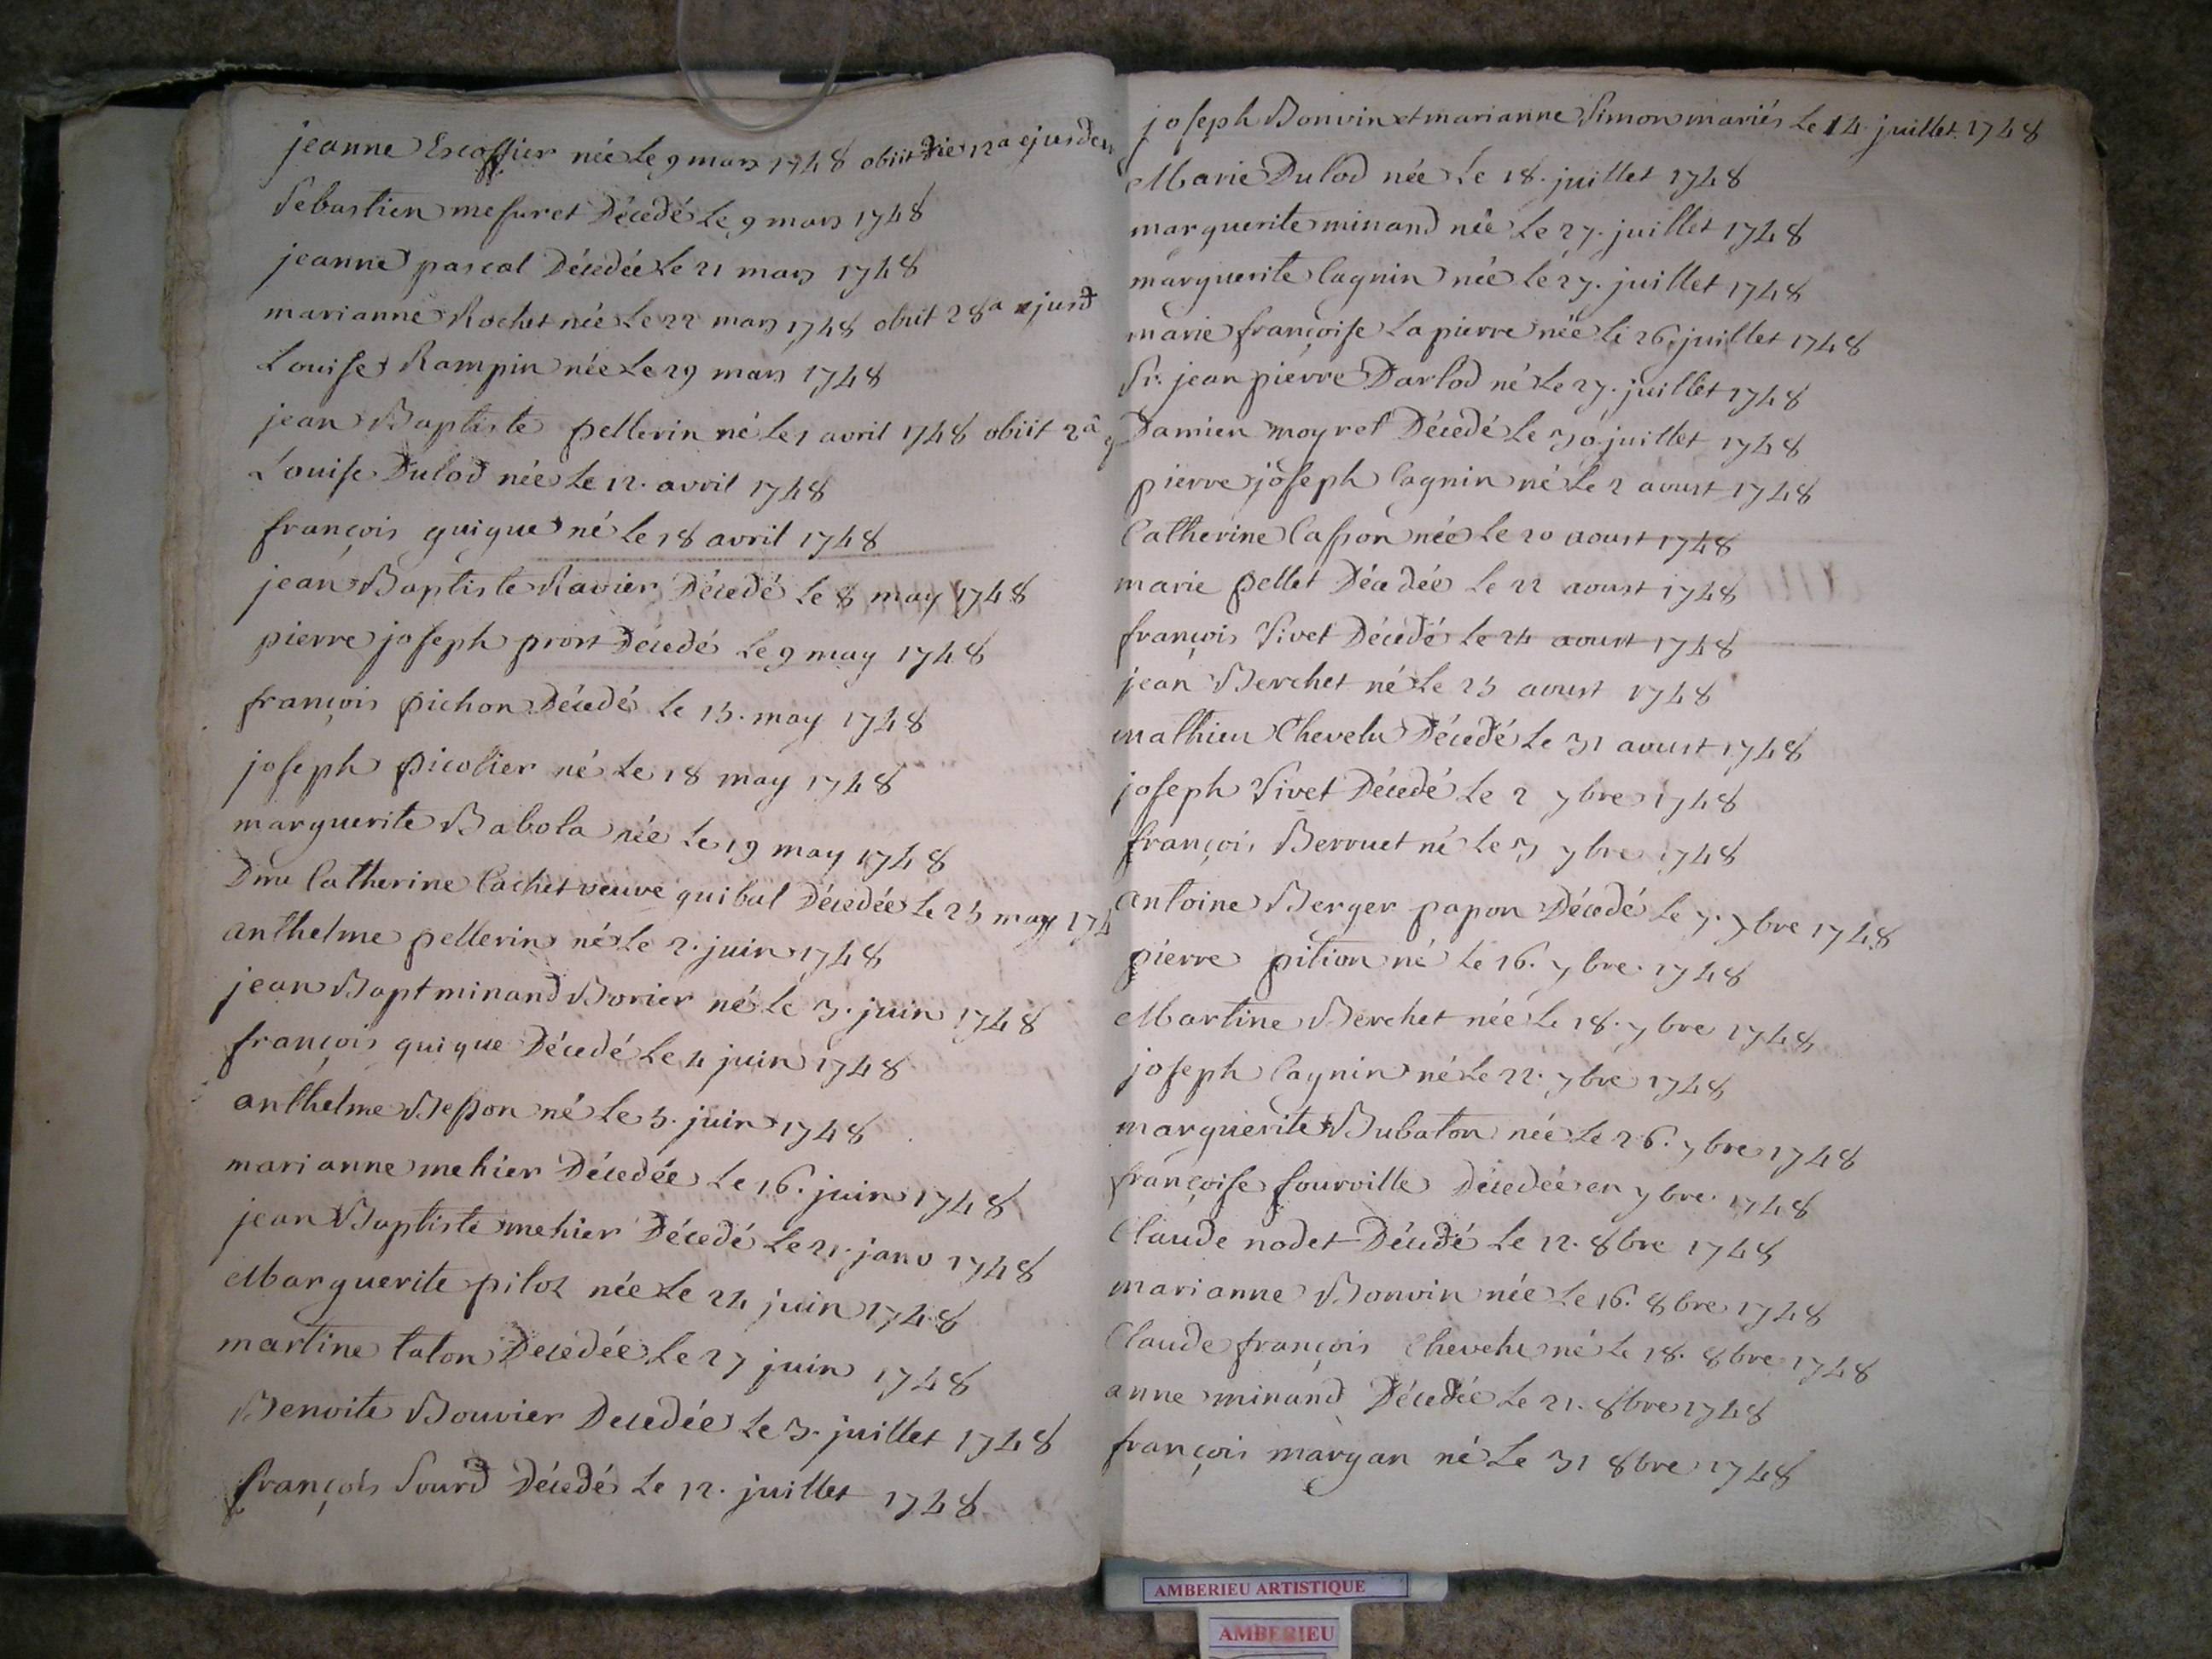 jeanne Escoffier née Le 9 mars 1748 obiit die 12a ejusdem
Sebastien mesuret Décedé Le 9 mars 1748
jeanne pascal Décedée Le 21 mars 1748
marianne Rochet née Le 22 mars 1748 obiit 28a ejusd
Louise Rampin née Le 29 mars 1748
jean Baptiste pellerin né Le 1 avril 1748 obiit 2a
Louise Dulod née Le 12. avril 1748
françois guigue né Le 18 avril 1748
jean Baptiste Ravier Décedé Le 8 may 1748
pierre joseph prost Décedé Le 9 may 1748
françois pichon Décedé Le 15. may 1748
joseph picolier né Le 18 may 1748
marguerite Babola née Le 19 may 1748
Catherine Cachet veuve guibal Décedée Le 25 may 174
anthelme pellerin né Le 2. juin 1748
jean Bapt minand Borier né Le 3. juin 1748
françois guigue Décedé Le 4 juin 1748
anthelme Besson né Le 5. juin 1748
marianne mehier Décedée Le 16. juin 1748
jean Baptiste mehier Décedé Le 21. janv 1748
Marguerite piloz née Le 24 juin 1748
martine talon Decedée Le 27 juin 1748
Benoite Bouvier Decedée Le 3. juillet 1748
françois Sourd Décedé Le 12. juillet 1748
joseph Bonvin et marianne Simon mariés Le 14. juillet 1748
Marie Dulod née Le 18. juillet 1748
marguerite minand née Le 27. juillet 1748
marguerite Cagnin née Le 27. juillet 1748
marie françoise Lapierre née Le 26. juillet 1748
Sr. jean pierre Darlod né Le 27. juillet 1748
Damien moyret Décedé Le 30. juillet 1748
pierre joseph Cagnin né Le 2 aoust 1748
Catherine Casson née Le 20 aoust 1748
marie pellet Décedée Le 22 aoust 1748
françois Vivet Décedé Le 24 aoust 1748
jean Berchet né Le 25 aoust 1748
mathieu Chevelu Décedé Le 31 aoust 1748
joseph Vivet Décedé Le 2 7bre 1748
françois Berruet né Le 3 7bre 1748
antoine Berger papon Décedé Le 7. 7bre 1748
pierre pition né Le 16. 7bre. 1748
Martine Berchet née Le 18. 7bre 1748
joseph Cagnin né Le 22. 7bre 1748
marguerite Bubaton née Le 26. 7bre 1748
françoise fourville Décedée en 7bre. 1748
Claude nodet Décedé Le 12. 8bre 1748
marianne Bonvin née Le 16. 8bre 1748
Claude françois Chevelu né Le 18. 8bre 1748
anne minand Décedée Le 21. 8bre 1748
françois margan né Le 31 8bre 1748
AMBERIEU ARTISTIQUE
AMBERIEU